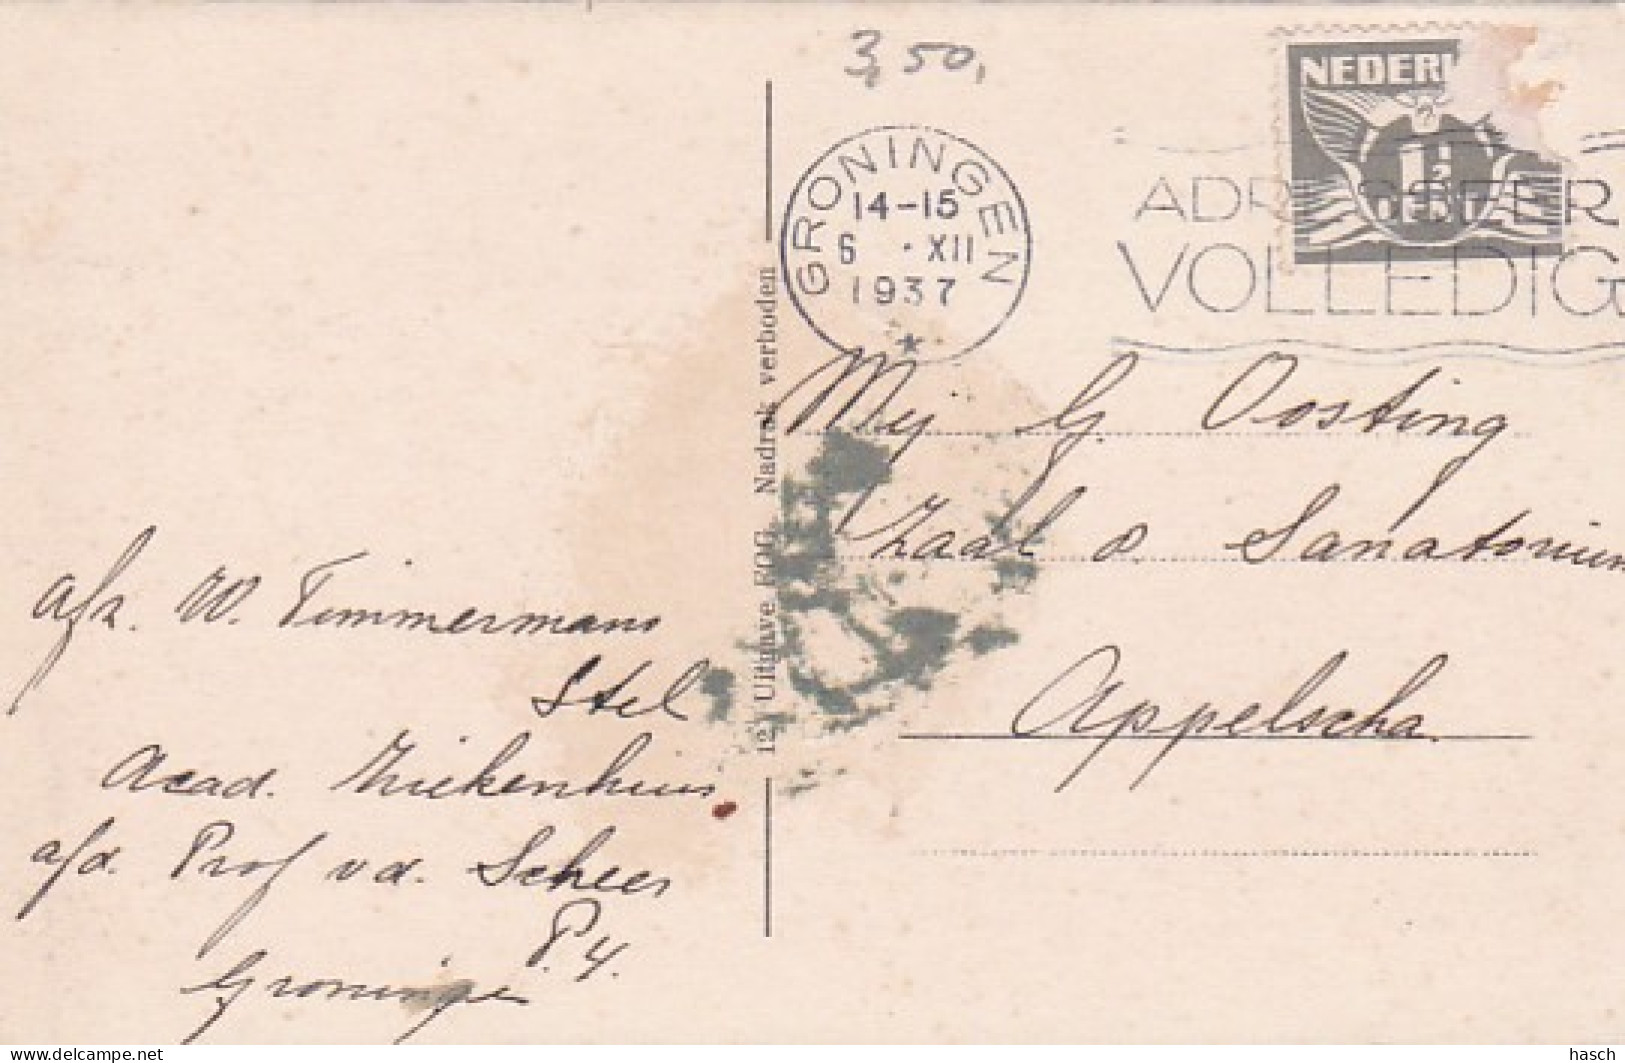 3,50,
NEDERL
1½
CENT
GRONINGEN
14-15
6 · XII
1937
ADRESSEER
VOLLEDIG
Mej G. Oosting
Zaal 8. Sanatorium
Appelscha.
Uitgave FOG. Nadruk verboden
afz. W. Timmermans
Stel
Acad. Ziekenhuis
afd. Prof v d. Scheer
P.4.
Groningen
www.delcampe.net
hasch